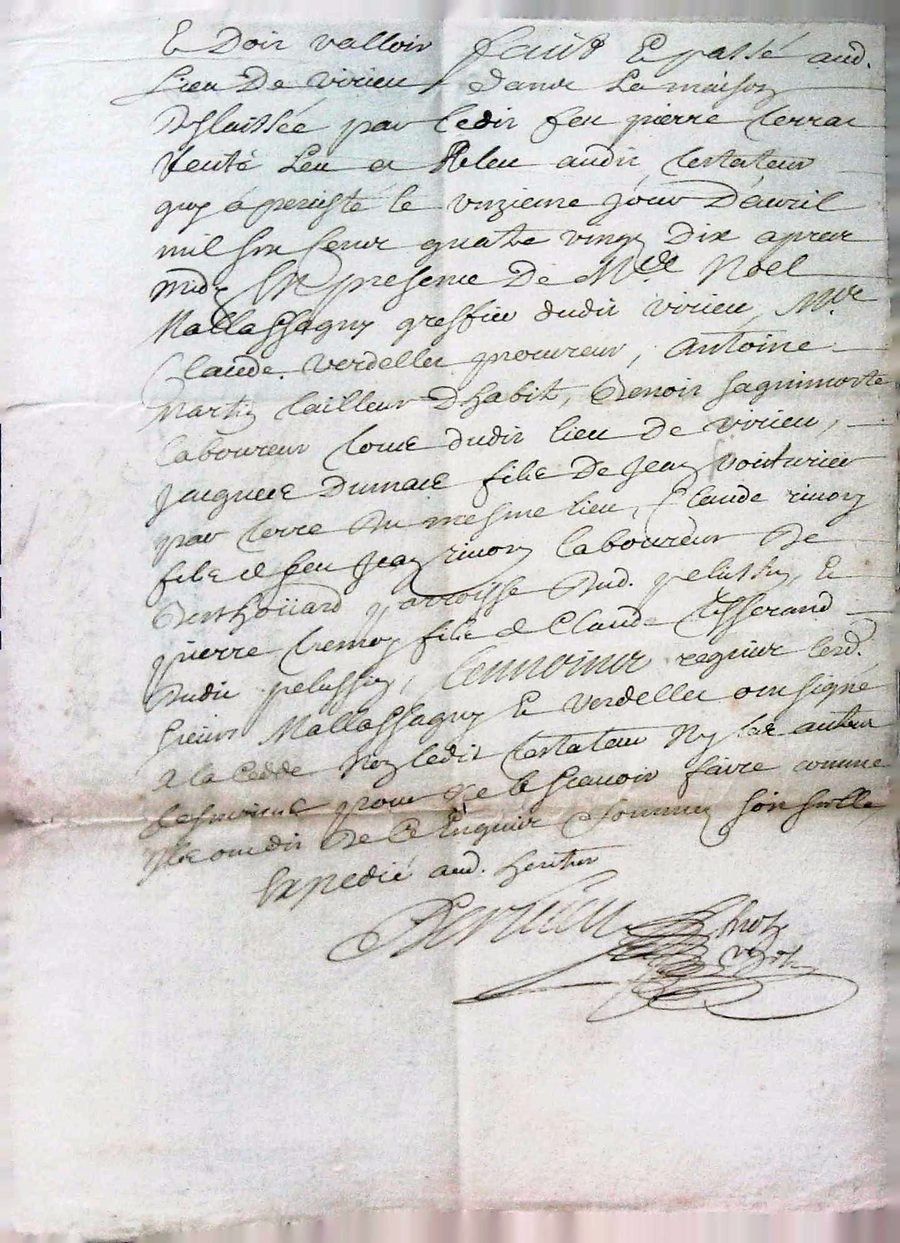 E Doit valloir faict E passé aud.
Lieu De virieu dans La maison
Delaissée par ledit feu pierre
Leu et Releu audit testateur
quy à persisté le unzieme jour D'avril
mil six sents quatre vingt Dix apres
midy En presence De Mre Noel
Mallassagny greffier dudit virieu, Mre
Claude Verdellet procureur, Antoine
Martin tailleur D'habit, Benoit
laboureur tous dudit lieu De virieu,
Jacques Dumas fils De Jean voiturier
par terre du mesme lieu, Claude rivory
fils de feu Jean rivory laboureur De
parroisse dud. pelussin, E
pierre fils de Claude tisserand
dudit pelussin, tesmoins requis lesd.
sieurs Mallassagny E Verdellet ont signé
A la cedde Non ledit testateur Ny les autres
tesmoins pour ne le scavoir faire comme
ils ont dit De ce Enquis E sommes soit
Expedié aud. heritier